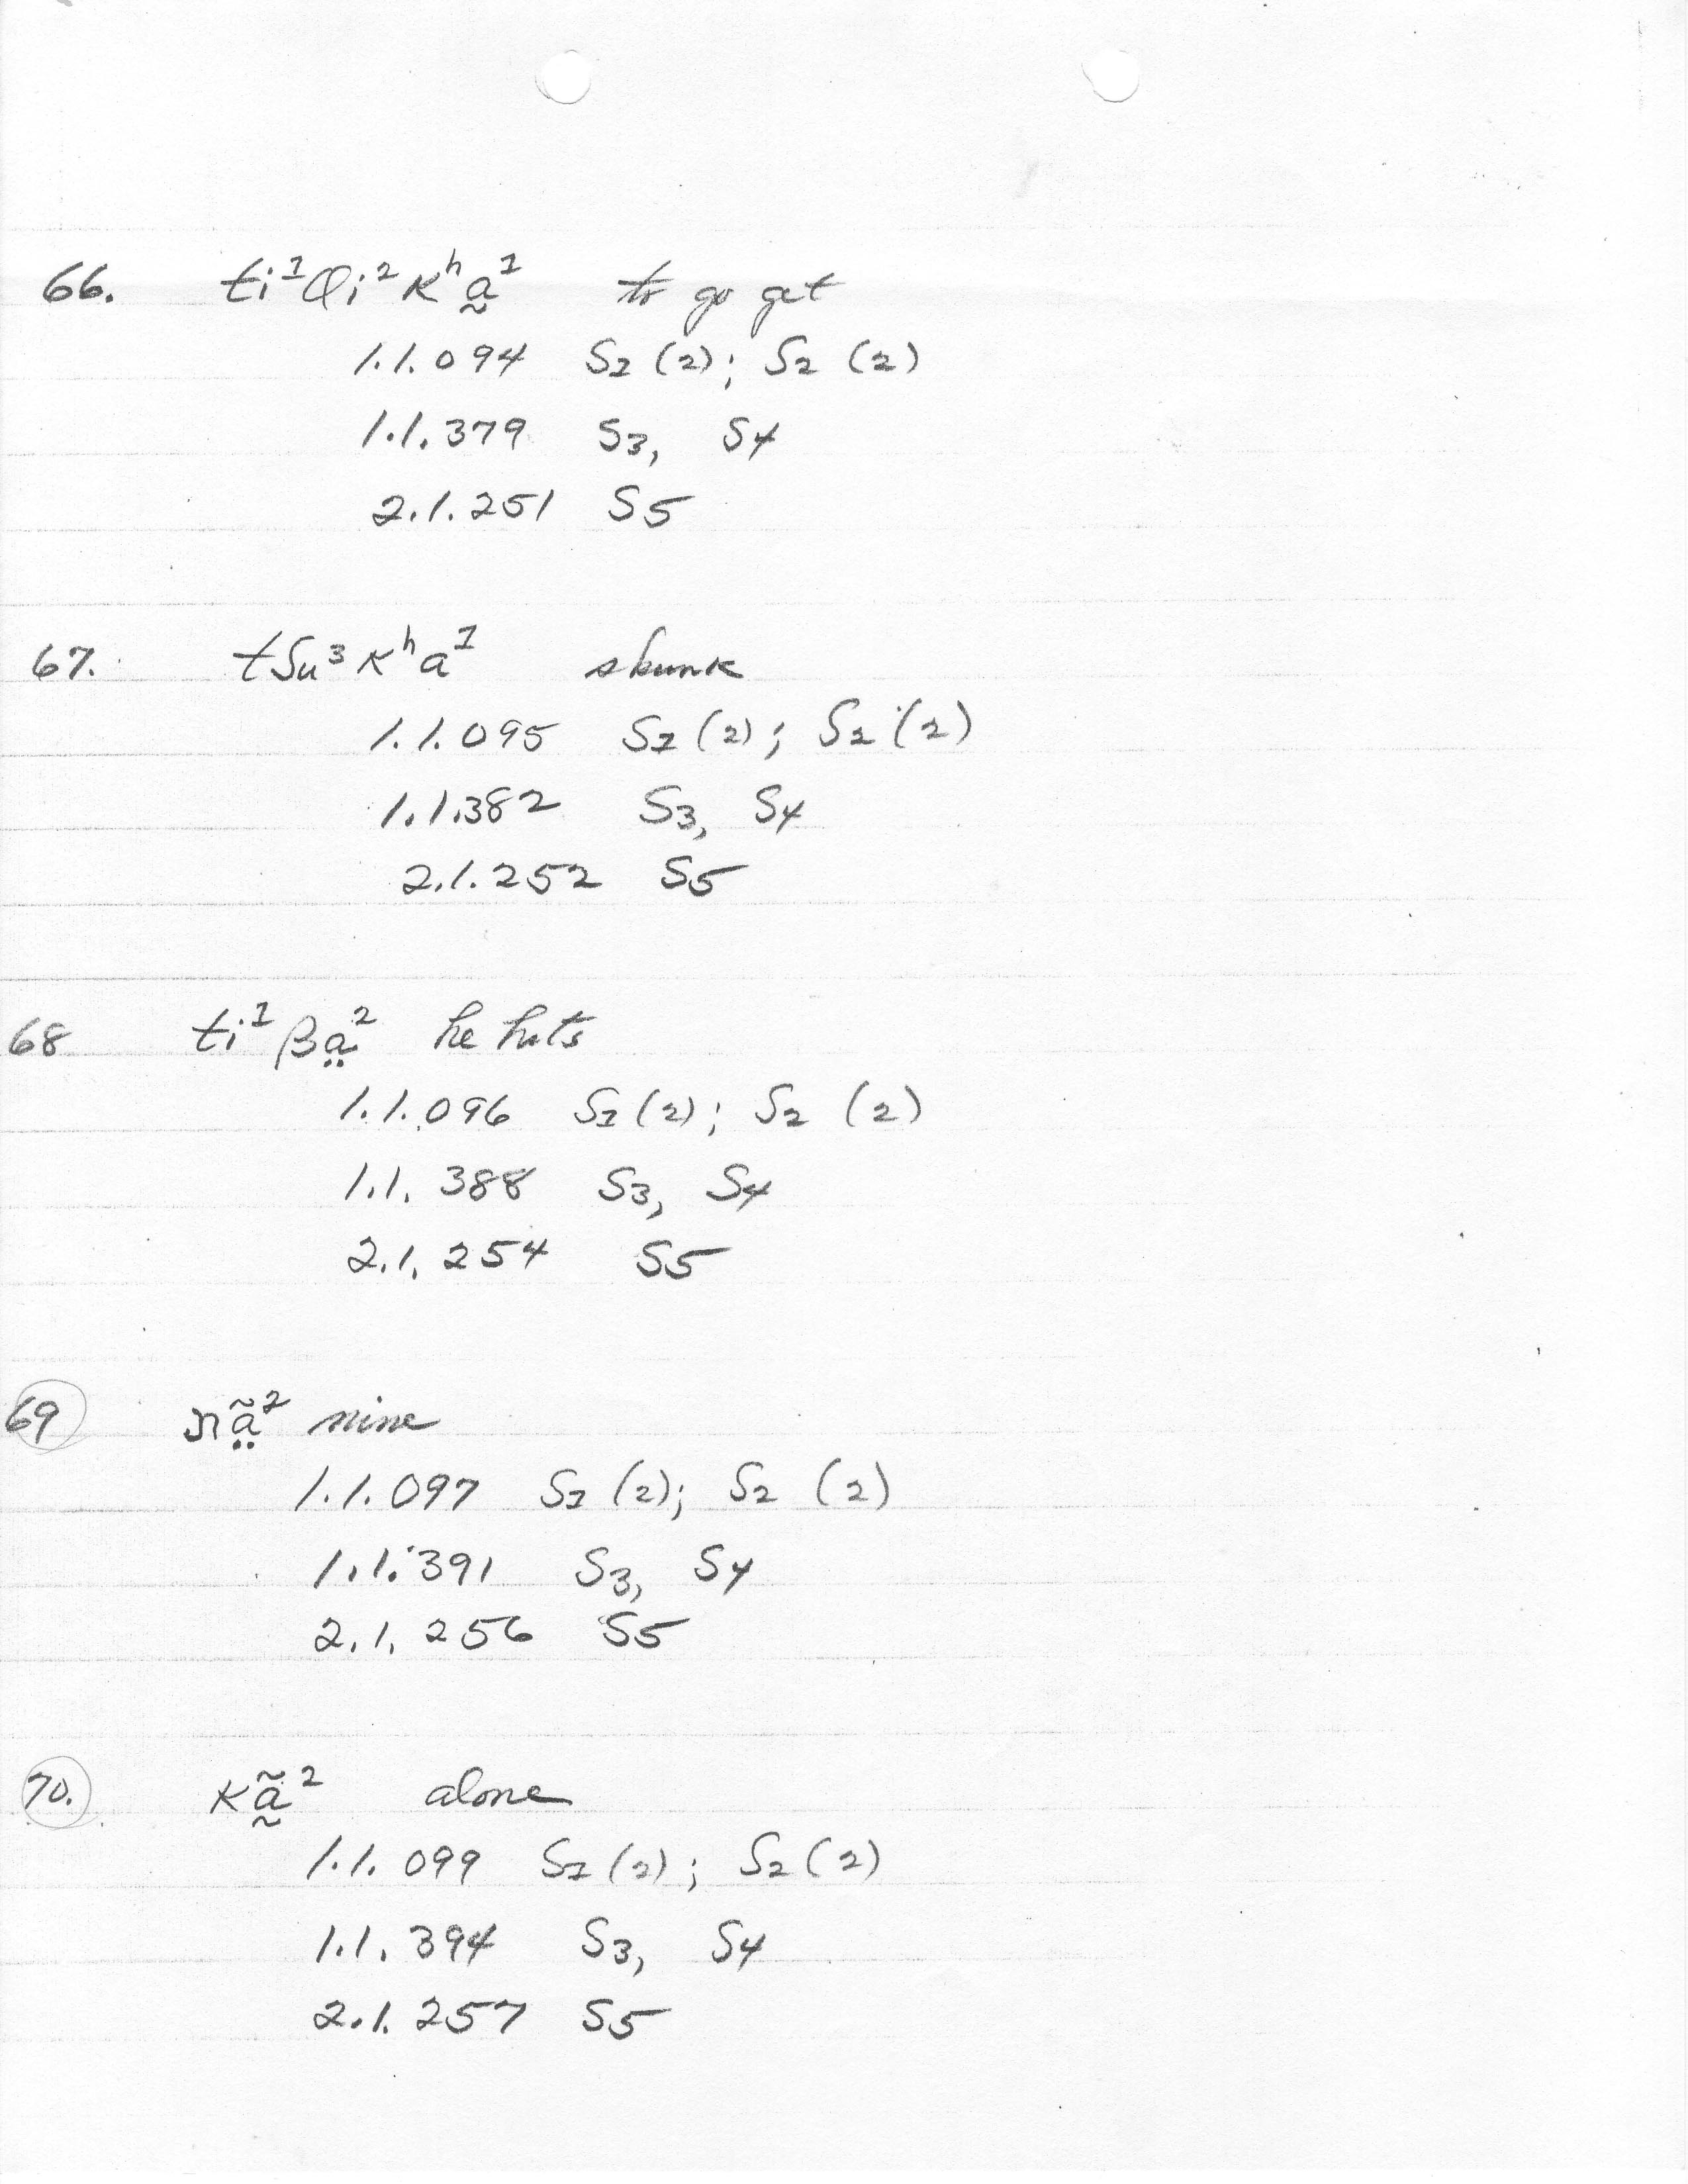 66. ti¹θi²kʰa̰¹ to go get
1.1.094 S1 (2); S2 (2)
1.1.379 S3, S4
2.1.251 S5
67. tʃu³kʰa¹ skunk
1.1.095 S1 (2); S2 (2)
1.1.382 S3, S4
2.1.252 S5
68 ti¹βa̤² he hits
1.1.096 S1 (2); S2 (2)
1.1.388 S3, S4
2.1.254 S5
69 ɲã̤² nine
1.1.097 S1 (2); S2 (2)
1.1.391 S3, S4
2.1.256 S5
70. kã̰² alone
1.1.099 S1 (2); S2 (2)
1.1.394 S3, S4
2.1.257 S5